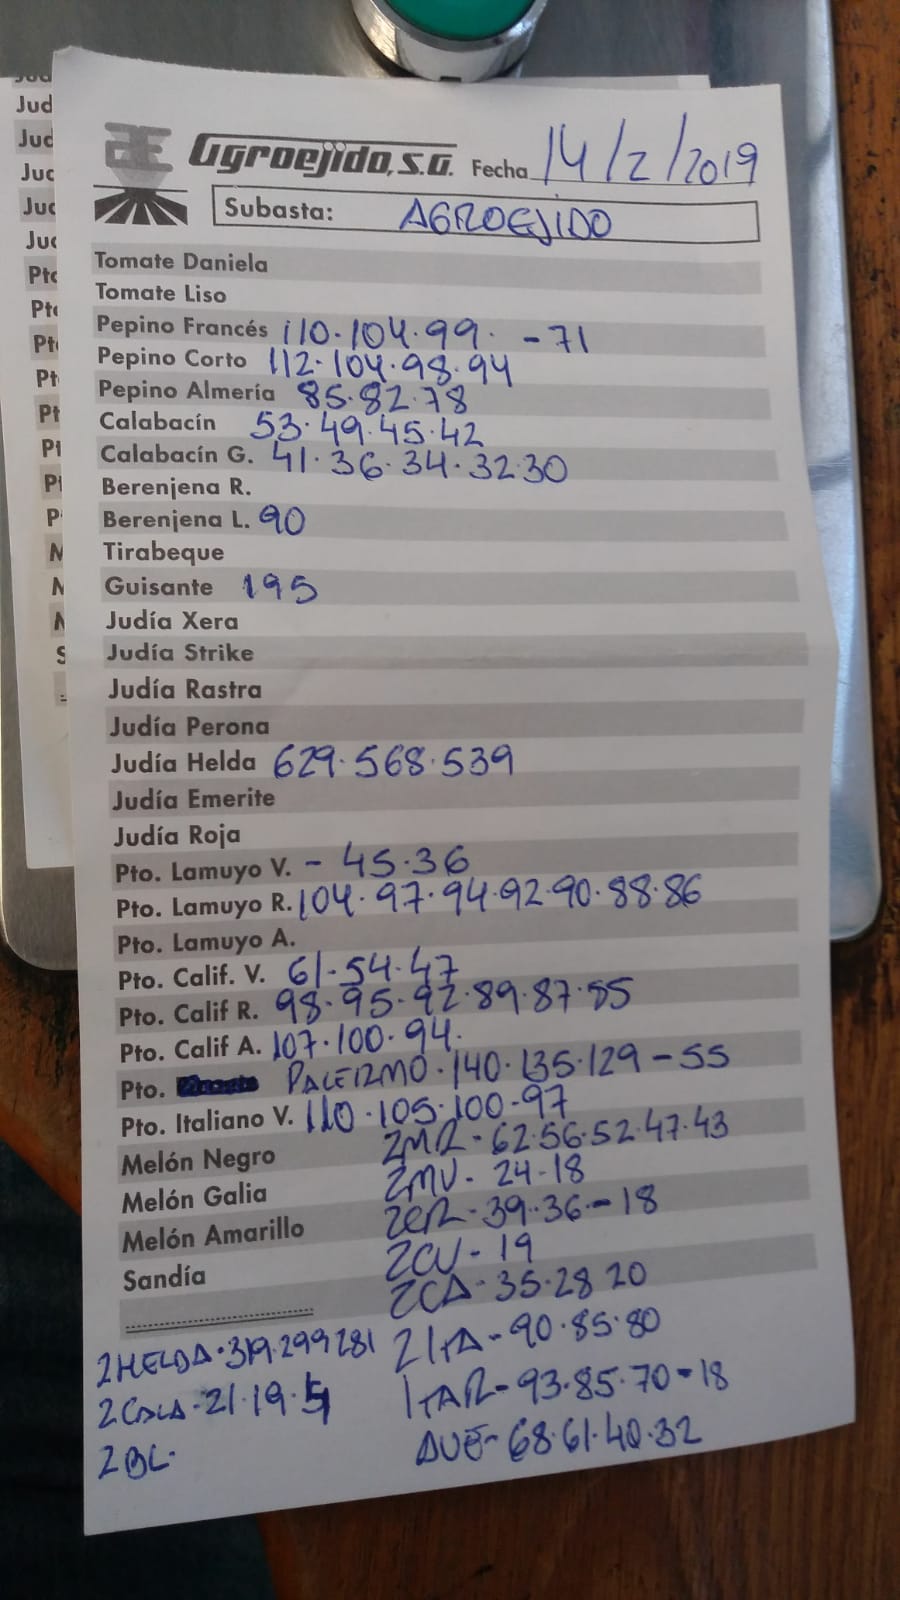 Agroejido, S.A. Fecha 14/2/2019
Subasta: AGROEJIDO
Tomate Daniela
Tomate Liso
Pepino Francés 110.104.99. -71
Pepino Corto 112.104.98.94
Pepino Almería 85.82.78
Calabacín 53.49.45.42
Calabacín G. 41.36.34.32.30
Berenjena R.
Berenjena L. 90
Tirabeque
Guisante 195
Judía Xera
Judía Strike
Judía Rastra
Judía Perona
Judía Helda 629.568.539
Judía Emerite
Judía Roja
Pto. Lamuyo V. - 45.36
Pto. Lamuyo R. 104.97.94.92.90.88.86
Pto. Lamuyo A.
Pto. Calif. V. 61.54.47
Pto. Calif R. 98.95.92.89.87.85
Pto. Calif A. 107.100.94.
Pto. PALERMO.140.135.129-55
Pto. Italiano V. 110.105.100.97
Melón Negro 2MR-62.56.52.47.43
Melón Galia 2MV. 24-18
Melón Amarillo 2CR-39.36-18
2CV-19
Sandía 2CA-35.28 20
2HELDA.319.299 281 2ITA-90.85.80
2CALA.21.19. ITAR-93.85.70-18
2BL. 68.61.40.32
Jud
Jud
Jud
Jud
Jud
Pto
Pt
Pt
Pt
Pt
P
P
P
M